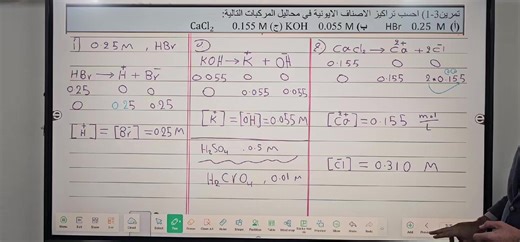 تمرين(3-1) احسب تراكيز الاصناف الايونية في محاليل المركبات التالية:
(أ) HBr 0.25 M (ب) KOH 0.055 M (ج) CaCl₂ 0.155 M
أ) 0.25 M , HBr
HBr → H⁺ + Br⁻
0.25 0 0
0 0.25 0.25
[H⁺] = [Br⁻] = 0.25 M
KOH → K⁺ + OH⁻
0.055 0 0
0 0.055 0.055
[K⁺] = [OH⁻] = 0.055 M
H₂SO₄ 0.5 M
H₂CrO₄ , 0.01 M
CaCl₂ → Ca²⁺ + 2Cl⁻
0.155 0 0
0 0.155 2×0.155
[Ca²⁺] = 0.155 mol/L
[Cl⁻] = 0.310 M